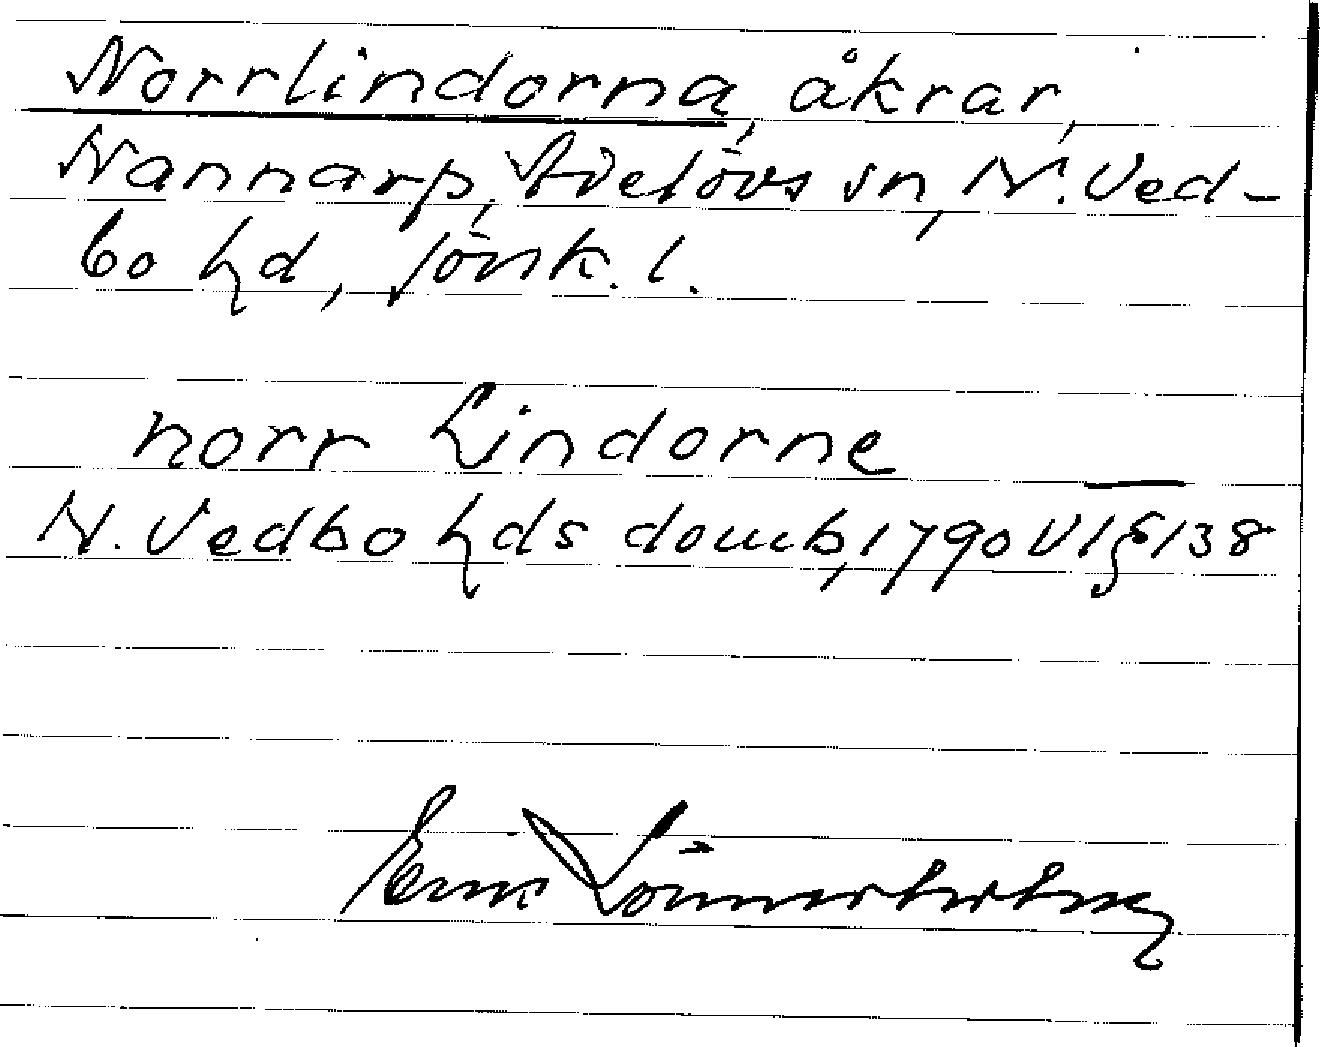 Norrlindorna, åkrar,
Nannarp, Adelövs sn, N. Ved-
bo hd, Jönk. l.
norr Lindorne
N. Vedbo hds domb, 1790 VI § 138
Erik Lönnerholm